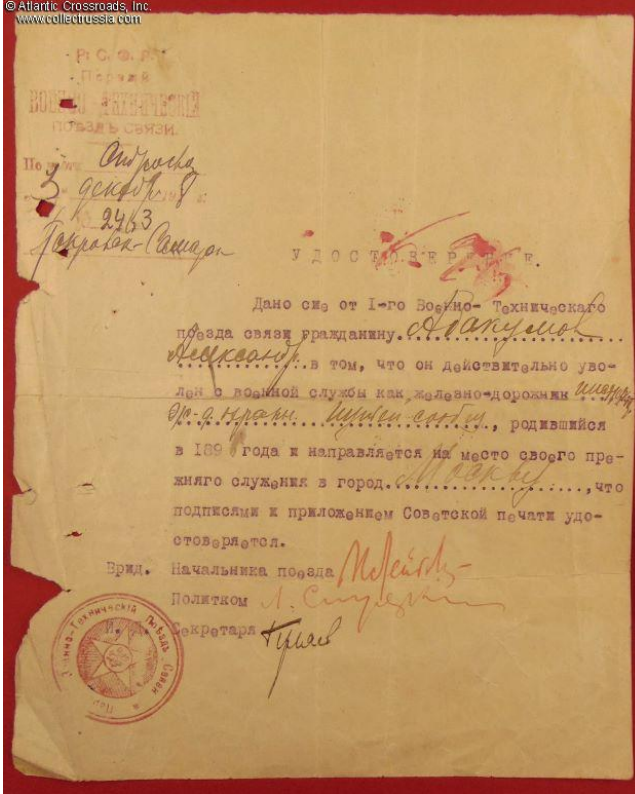 © Atlantic Crossroads, Inc.
www.collectrussia.com
Р. С. Ф. Р.
Первый
ВОЕННО - ТЕХНИЧЕСКIЙ
ПОѢЗДЪ СВЯЗИ.
3 декабр 8
№ 2463
Покровск-
УДОСТОВЕРЕНИЕ.
Дано сие от I-го Военно- Техническаго
поезда связи гражданину. Абакумов
Александр. в том, что он действительно уво-
лен с военной службы как железно-дорожник
, родившийся
в 189 года и направляется на место своего пре-
жняго служения в город Москву, что
подписями и приложением Советской печати удо-
стоверяется.
Врид. Начальника поезда
Политком
Секретаря
Военно-Техническiй Поѣздъ Связи